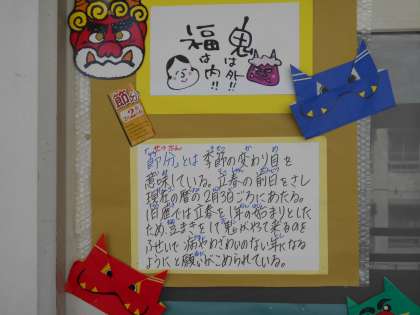 鬼は外!!
福は内!!
節分
2
節分とは季節の変わり目を
意味している。立春の前日をさし
現在の暦の2月3日ごろにあたる。
旧暦では立春を1年の始まりとした
ため、豆まきをして鬼がやって来るのを
ふせいで病やわざわいのない年になる
ようにと願いがこめられている。